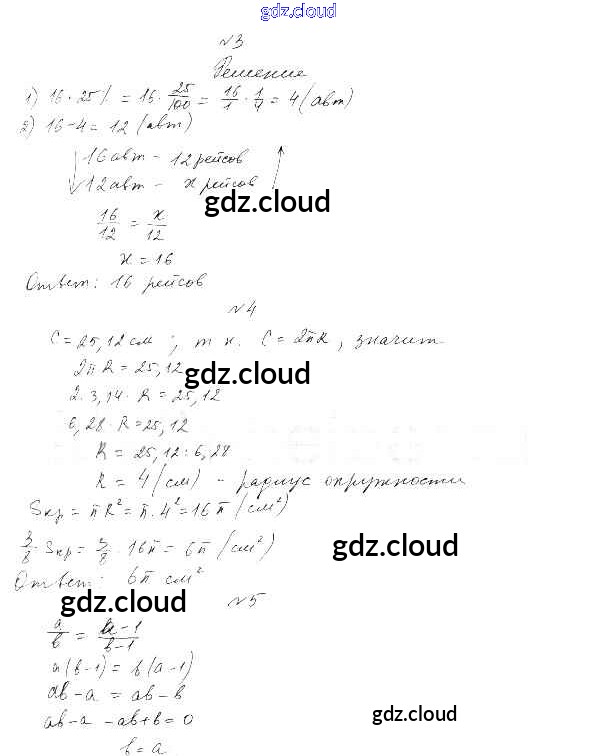 gdz.cloud
№3
Решение
1) 16 · 25% = 16 · 25/100 = 16/1 · 1/4 = 4 (авт)
2) 16-4 = 12 (авт)
↓ 16 авт - 12 рейсов ↑
12 авт - x рейсов
gdz.cloud
16/12 = x/12
x = 16
Ответ: 16 рейсов
№4
C = 25,12 см ; т к. C = 2πR, значит
2πR = 25,12
gdz.cloud
2 · 3,14 · R = 25,12
6,28 · R = 25,12
R = 25,12 : 6,28
R = 4 (см) - радиус окружности
Sкр = πR² = π · 4² = 16π (см²)
3/8 · Sкр = 3/8 · 16π = 6π (см²)
gdz.cloud
Ответ: 6π см²
gdz.cloud
№5
a/b = a-1/b-1
a(b-1) = b(a-1)
ab-a = ab-b
ab-a-ab+b=0
gdz.cloud
b = a